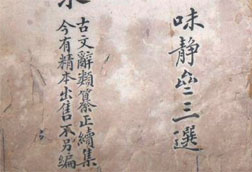 味靜齋三選
古文辭類纂正續集
今有精本出售不另編